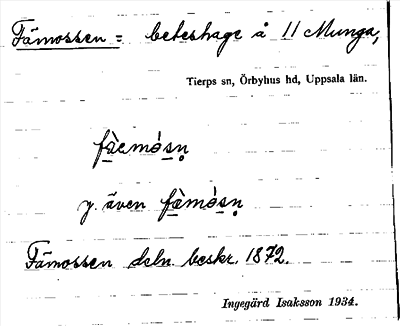 Fämossen = beteshage å 11 Munga,
Tierps sn, Örbyhus hd, Uppsala län.
fæ̀emósn̥
y. även fæ̀mósn̥
Fämossen deln. beskr. 1872.
Ingegärd Isaksson 1934.